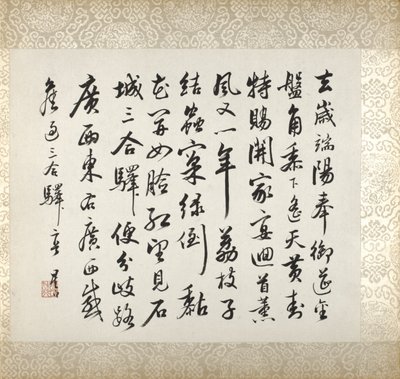 去歲端陽奉御筵金
盤角黍下遙天黃封
特賜開家宴迴首薰
風又一年 荔枝子
結蟲窠綠倒黏
花開如臉紅望見石
城三合驛便分歧路
廣西東右廣西感
舊過三合驛